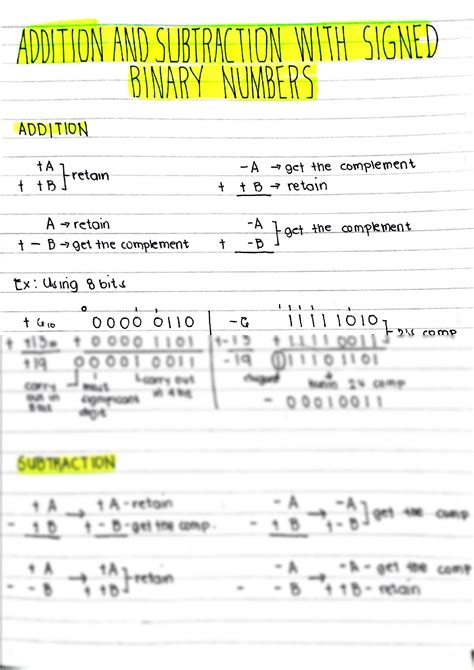 ADDITION AND SUBTRACTION WITH SIGNED
BINARY NUMBERS
ADDITION
+A
+ +B ] retain
-A → get the complement
+ +B → retain
A → retain
+ - B → get the complement
-A
+ -B } get the complement
Ex: Using 8 bits
+ 6₁₀ 0000 0110
+ +13 + 0000 1101
+19 0001 0011
carry out in 8 bit
significant digit
carry out in 4 bit
-6 11111010
+ -13 + 1111 0011
2's comp
-19 1 1110 1101
2's comp
- 00010011
SUBTRACTION
+ A → + A - retain
- + B + - B - get the comp.
- A → - A
- + B + - B ] get the comp
+ A → + A
- - B + + B } retain
- A → - A - get the comp
- - B + + B - retain